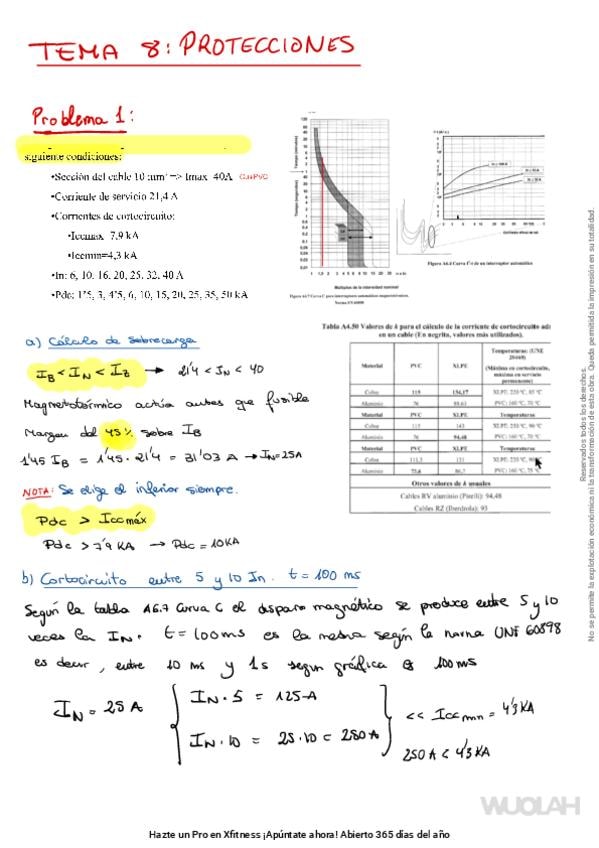 TEMA 8: PROTECCIONES
Problema 1:
siguiente condiciones:
•Sección del cable 10 mm² => Imax 40A Cu PVC
•Corriente de servicio 21,4 A
•Corrientes de cortocircuito:
•Iccmax 7,9 kA
•Iccmin=4,3 kA
•In: 6, 10, 16, 20, 25, 32, 40 A
•Pdc: 1'5, 3, 4'5, 6, 10, 15, 20, 25, 35, 50 kA
Múltiplos de la intensidad nominal
Figura A6.7 Curva C para interruptores automáticos magnetotérmicos.
Norma EN 60898
Figura A6.4 Curva I²t de un interruptor automático
Tabla A4.50 Valores de k para el cálculo de la corriente de cortocircuito
en un cable (En negrita, valores más utilizados).
Material PVC XLPE Temperaturas: (UNE
(Máxima en cortocircuito,
máxima en servicio
permanente)
Cobre 115
Aluminio 76
Material PVC XLPE Temperaturas
Cobre 115 143
Aluminio 76 94,48
Material PVC XLPE Temperaturas
Cobre 131
Aluminio
Otros valores de k usuales
Cables RV aluminio (Pirelli): 94,48
Cables RZ (Iberdrola): 93
a) Cálculo de Sobrecarga
IB < IN < IZ → 21'4 < IN < 40
Magnetotérmico actúa antes que fusible
Margen del 45% sobre IB
1'45 IB = 1'45 · 21'4 = 31'03 A → IN = 25A
NOTA: Se elige el inferior siempre.
Pdc > Iccmáx
Pdc > 7'9 KA → Pdc = 10KA
b) Cortocircuito entre 5 y 10 In. t = 100 ms
Según la tabla A6.7 Curva C el disparo magnético se produce entre 5 y 10
veces la IN. t = 100ms es la misma según la norma UNE 60898
es decir, entre 10 ms y 1s según gráfica 100ms
IN = 25 A
IN · 5 = 125 A
IN · 10 = 25 · 10 = 250 A
<< Iccmin = 4'3 KA
250 A < 4'3 KA
WUOLAH
Hazte un Pro en Xfitness ¡Apúntate ahora! Abierto 365 días del año
Reservados todos los derechos.
No se permite la explotación económica ni la transformación de esta obra. Queda permitida la impresión en su totalidad.